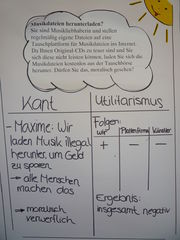 Musikdateien herunterladen?
Sie sind Musikliebhaberin und stellen
regelmäßig eigene Dateien auf eine
Tauschplattform für Musikdateien ins Internet.
Da Ihnen Original-CDs zu teuer sind und Sie
sich diese nicht leisten können, laden Sie sich die
Musikdateien kostenlos aus der Tauschbörse
herunter. Dürfen Sie das, moralisch gesehen?
Kant
Utilitarismus
- Maxime: Wir
laden Musik illegal
herunter, um Geld
zu sparen
→ alle Menschen
machen das
→ moralisch
verwerflich
Folgen:
wir | Plattenfirma | Künstler
+ | - | -
Ergebnis:
insgesamt negativ